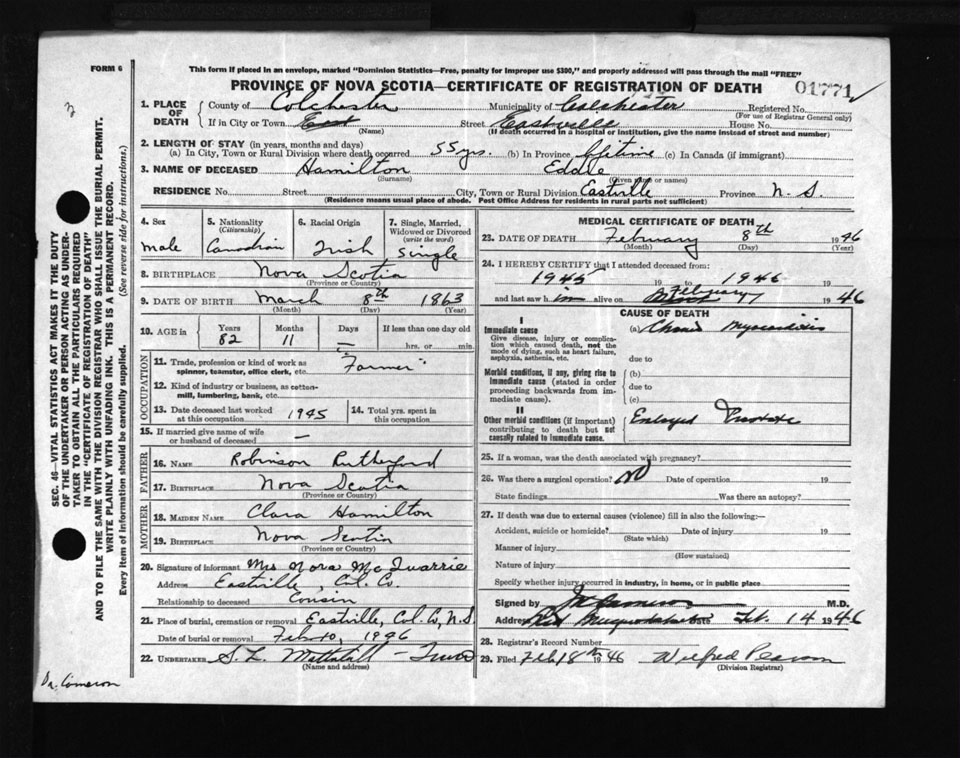 FORM 6
This form if placed in an envelope, marked "Dominion Statistics—Free, penalty for improper use $300," and properly addressed will pass through the mail "FREE"
PROVINCE OF NOVA SCOTIA—CERTIFICATE OF REGISTRATION OF DEATH
01771
1. PLACE OF DEATH
County of Colchester Municipality of Colchester Registered No.
(For use of Registrar General only)
If in City or Town East Street Eastville House No.
(Name) (If death occurred in a hospital or institution, give the name instead of street and number)
2. LENGTH OF STAY (in years, months and days)
(a) In City, Town or Rural Division where death occurred 55 yrs. (b) In Province lifetime (c) In Canada (if immigrant)
3. NAME OF DECEASED Hamilton Eddie
(Surname) (Given name or names)
RESIDENCE No. Street City, Town or Rural Division Eastville Province N. S.
(Residence means usual place of abode. Post Office Address for residents in rural parts not sufficient)
SEC. 46—VITAL STATISTICS ACT MAKES IT THE DUTY
OF THE UNDERTAKER OR PERSON ACTING AS UNDER-
TAKER TO OBTAIN ALL THE PARTICULARS REQUIRED
IN THE "CERTIFICATE OF REGISTRATION OF DEATH"
AND TO FILE THE SAME WITH THE DIVISION REGISTRAR WHO SHALL ISSUE THE BURIAL PERMIT.
WRITE PLAINLY WITH UNFADING INK. THIS IS A PERMANENT RECORD.
Every item of information should be carefully supplied. (See reverse side for instructions.)
4. Sex 5. Nationality (Citizenship) 6. Racial Origin 7. Single, Married, Widowed or Divorced (write the word)
male Canadian Irish Single
8. BIRTHPLACE Nova Scotia
(Province or Country)
9. DATE OF BIRTH March 8th 1863
(Month) (Day) (Year)
10. AGE in Years Months Days If less than one day old
82 11 — hrs. or min.
OCCUPATION
11. Trade, profession or kind of work as spinner, teamster, office clerk, etc. Farmer
12. Kind of industry or business, as cotton-mill, lumbering, bank, etc. "
13. Date deceased last worked at this occupation 1945 14. Total yrs. spent in this occupation
15. If married give name of wife or husband of deceased —
FATHER
16. NAME Robinson Rutherford
17. BIRTHPLACE Nova Scotia
(Province or Country)
MOTHER
18. MAIDEN NAME Clara Hamilton
19. BIRTHPLACE Nova Scotia
(Province or Country)
20. Signature of informant Mrs Nora McQuarrie
Address Eastville, Col. Co.
Relationship to deceased Cousin
21. Place of burial, cremation or removal Eastville, Col. Co, N.S.
Date of burial or removal Feb 10, 1946
22. UNDERTAKER S. L. Mattatall — Truro
(Name and address)
Dr. Cameron
MEDICAL CERTIFICATE OF DEATH
23. DATE OF DEATH February 8th 1946
(Month) (Day) (Year)
24. I HEREBY CERTIFY that I attended deceased from:
1945 19 to 1946
and last saw h im alive on February 7 1946
CAUSE OF DEATH
I
Immediate cause
Give disease, injury or complication which caused death, not the mode of dying, such as heart failure, asphyxia, asthenia, etc.
(a) Chronic Myocarditis
due to
Morbid conditions, if any, giving rise to immediate cause (stated in order proceeding backwards from immediate cause).
(b)
due to
(c)
II
Other morbid conditions (if important) contributing to death but not causally related to immediate cause.
Enlarged Prostate
25. If a woman, was the death associated with pregnancy?
26. Was there a surgical operation? No Date of operation 19
State findings Was there an autopsy?
27. If death was due to external causes (violence) fill in also the following:—
Accident, suicide or homicide? Date of injury 19
(State which)
Manner of injury
(How sustained)
Nature of injury
Specify whether injury occurred in industry, in home, or in public place
Signed by Cameron M.D.
Address Musquodoboit Date Feb. 14 1946
28. Registrar's Record Number
29. Filed Feb 18th 1946 Wilfred Pearson
(Division Registrar)